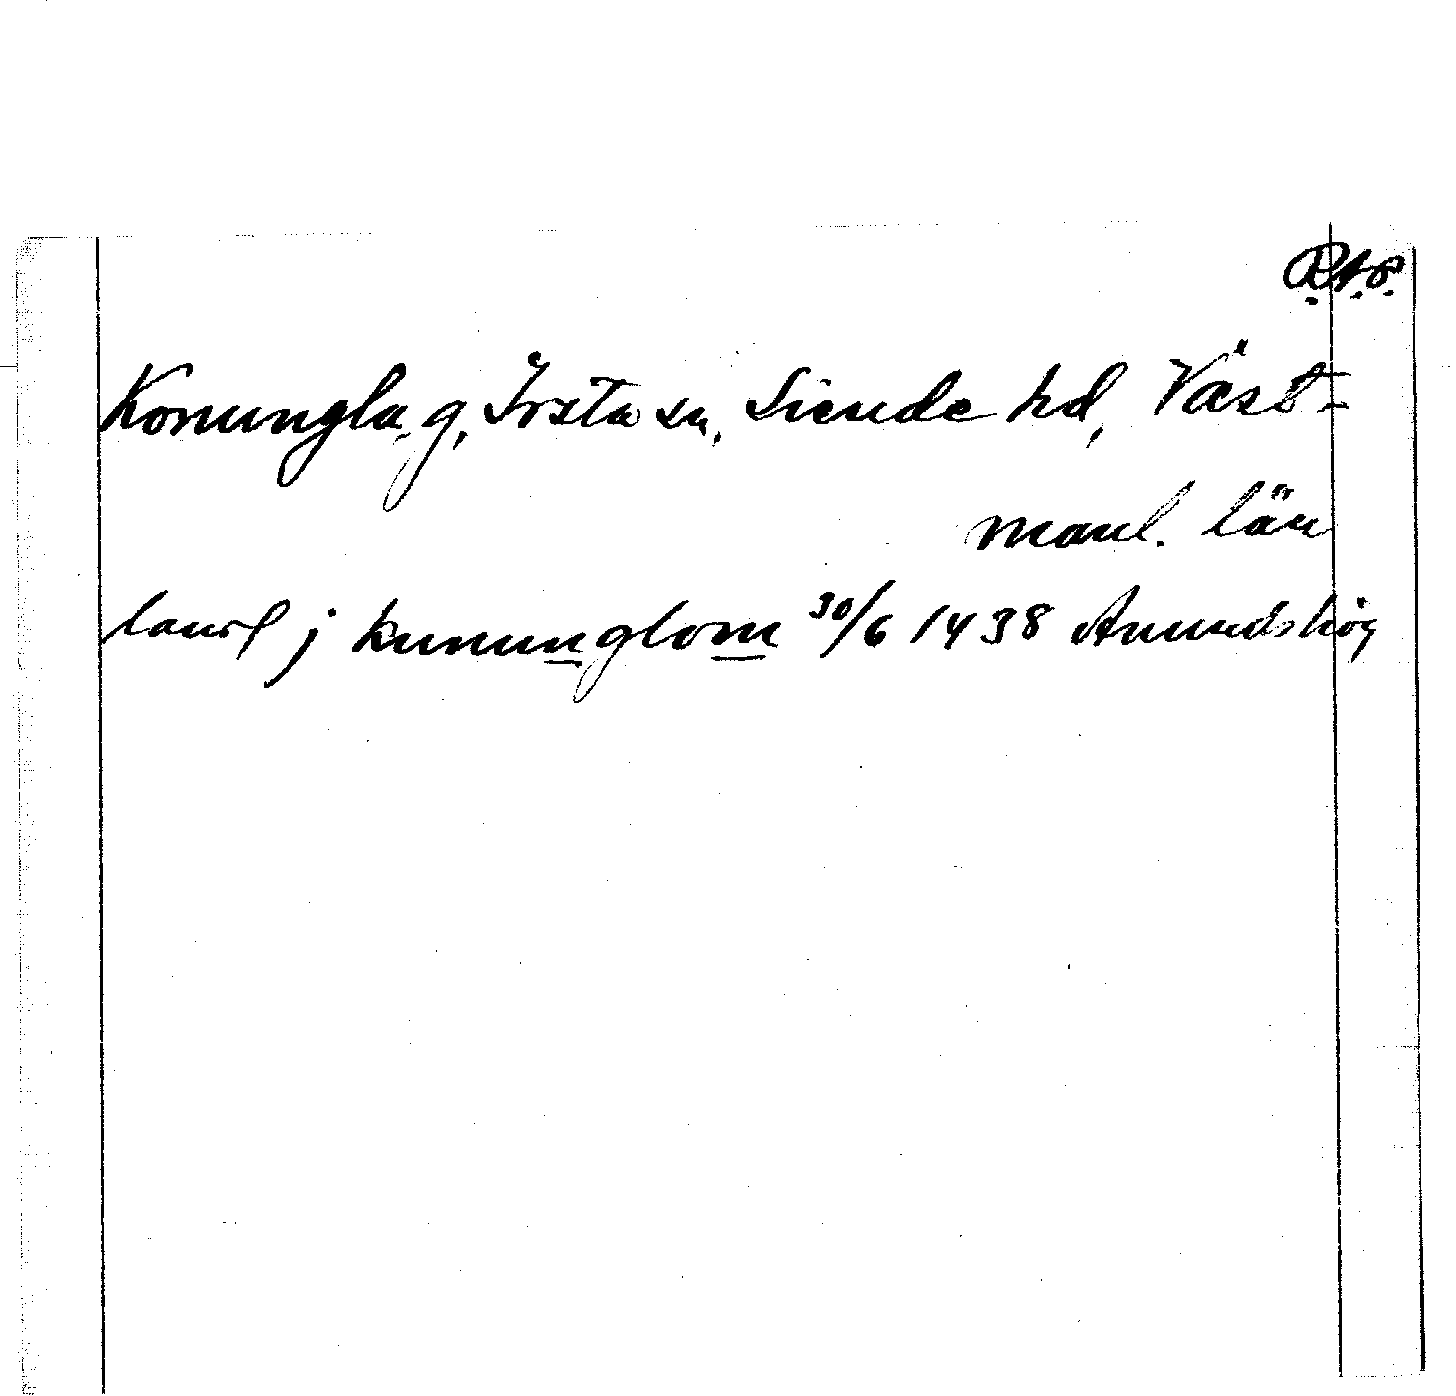 R.A.P.
Konungla, g, Irsta sn, Siende hd, Väst-
manl. län
j kununglom 30/6 1438 Anundshög